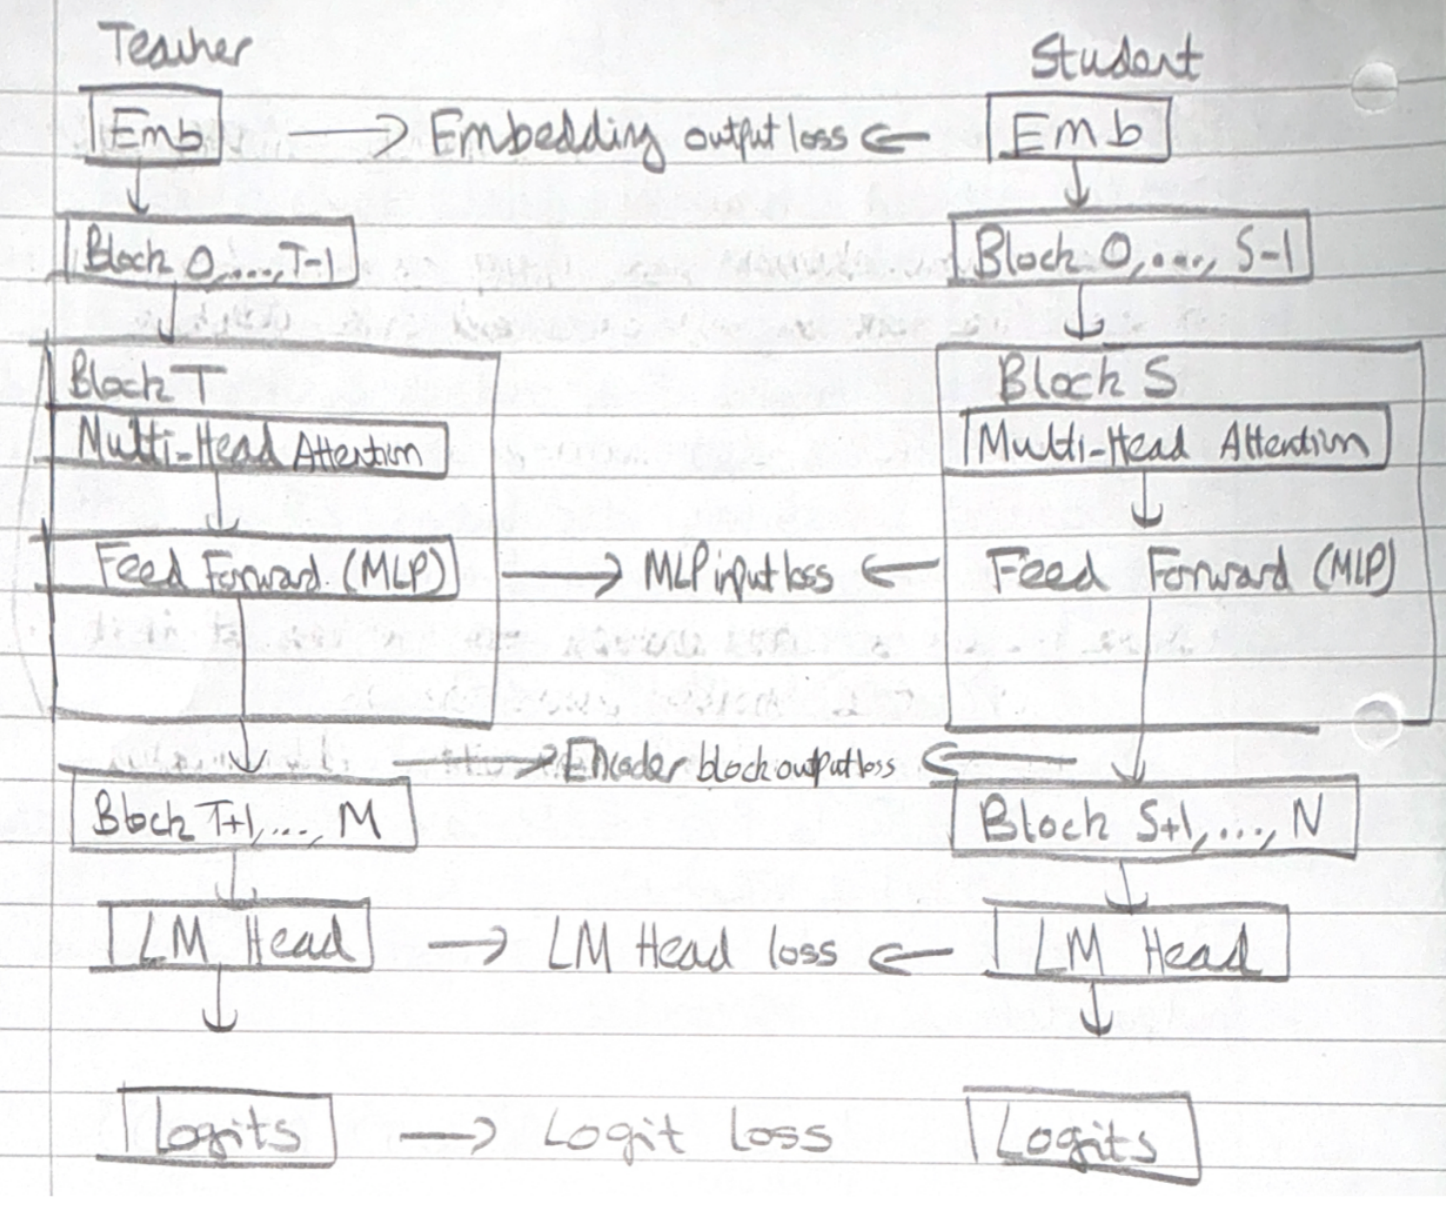 Teacher
Student
Emb
Embedding output loss
Emb
Block 0,...,T-1
Block 0,...,S-1
Block T
Block S
Multi-Head Attention
Multi-Head Attention
Feed Forward (MLP)
MLP input loss
Feed Forward (MLP)
Encoder block output loss
Block T+1,...,M
Block S+1,...,N
LM Head
LM Head loss
LM Head
Logits
Logit Loss
Logits